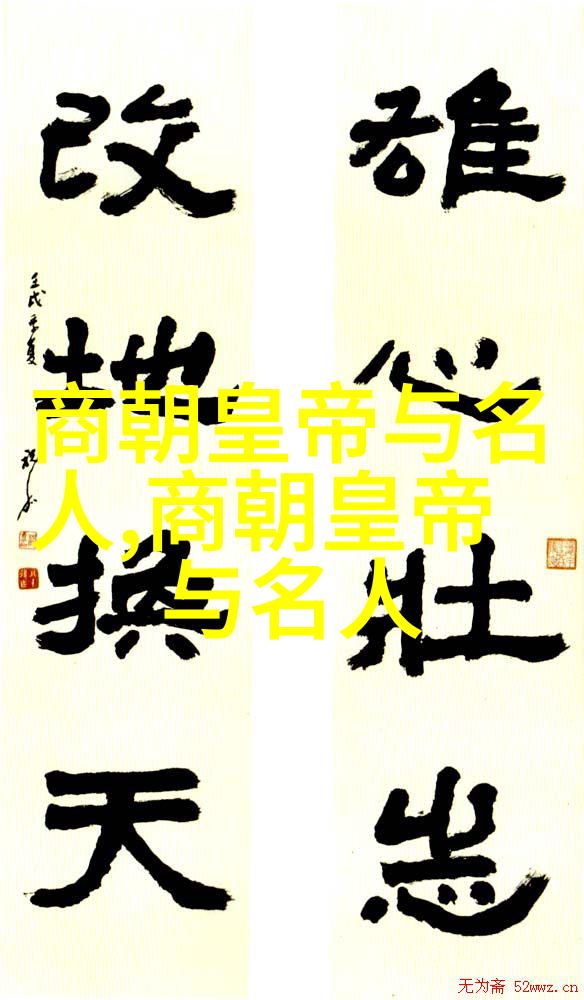 雄心壮志
改地换天
壬戌季夏
商朝皇帝与名
人,商朝皇帝
与名人
无为斋 52wwz.cn